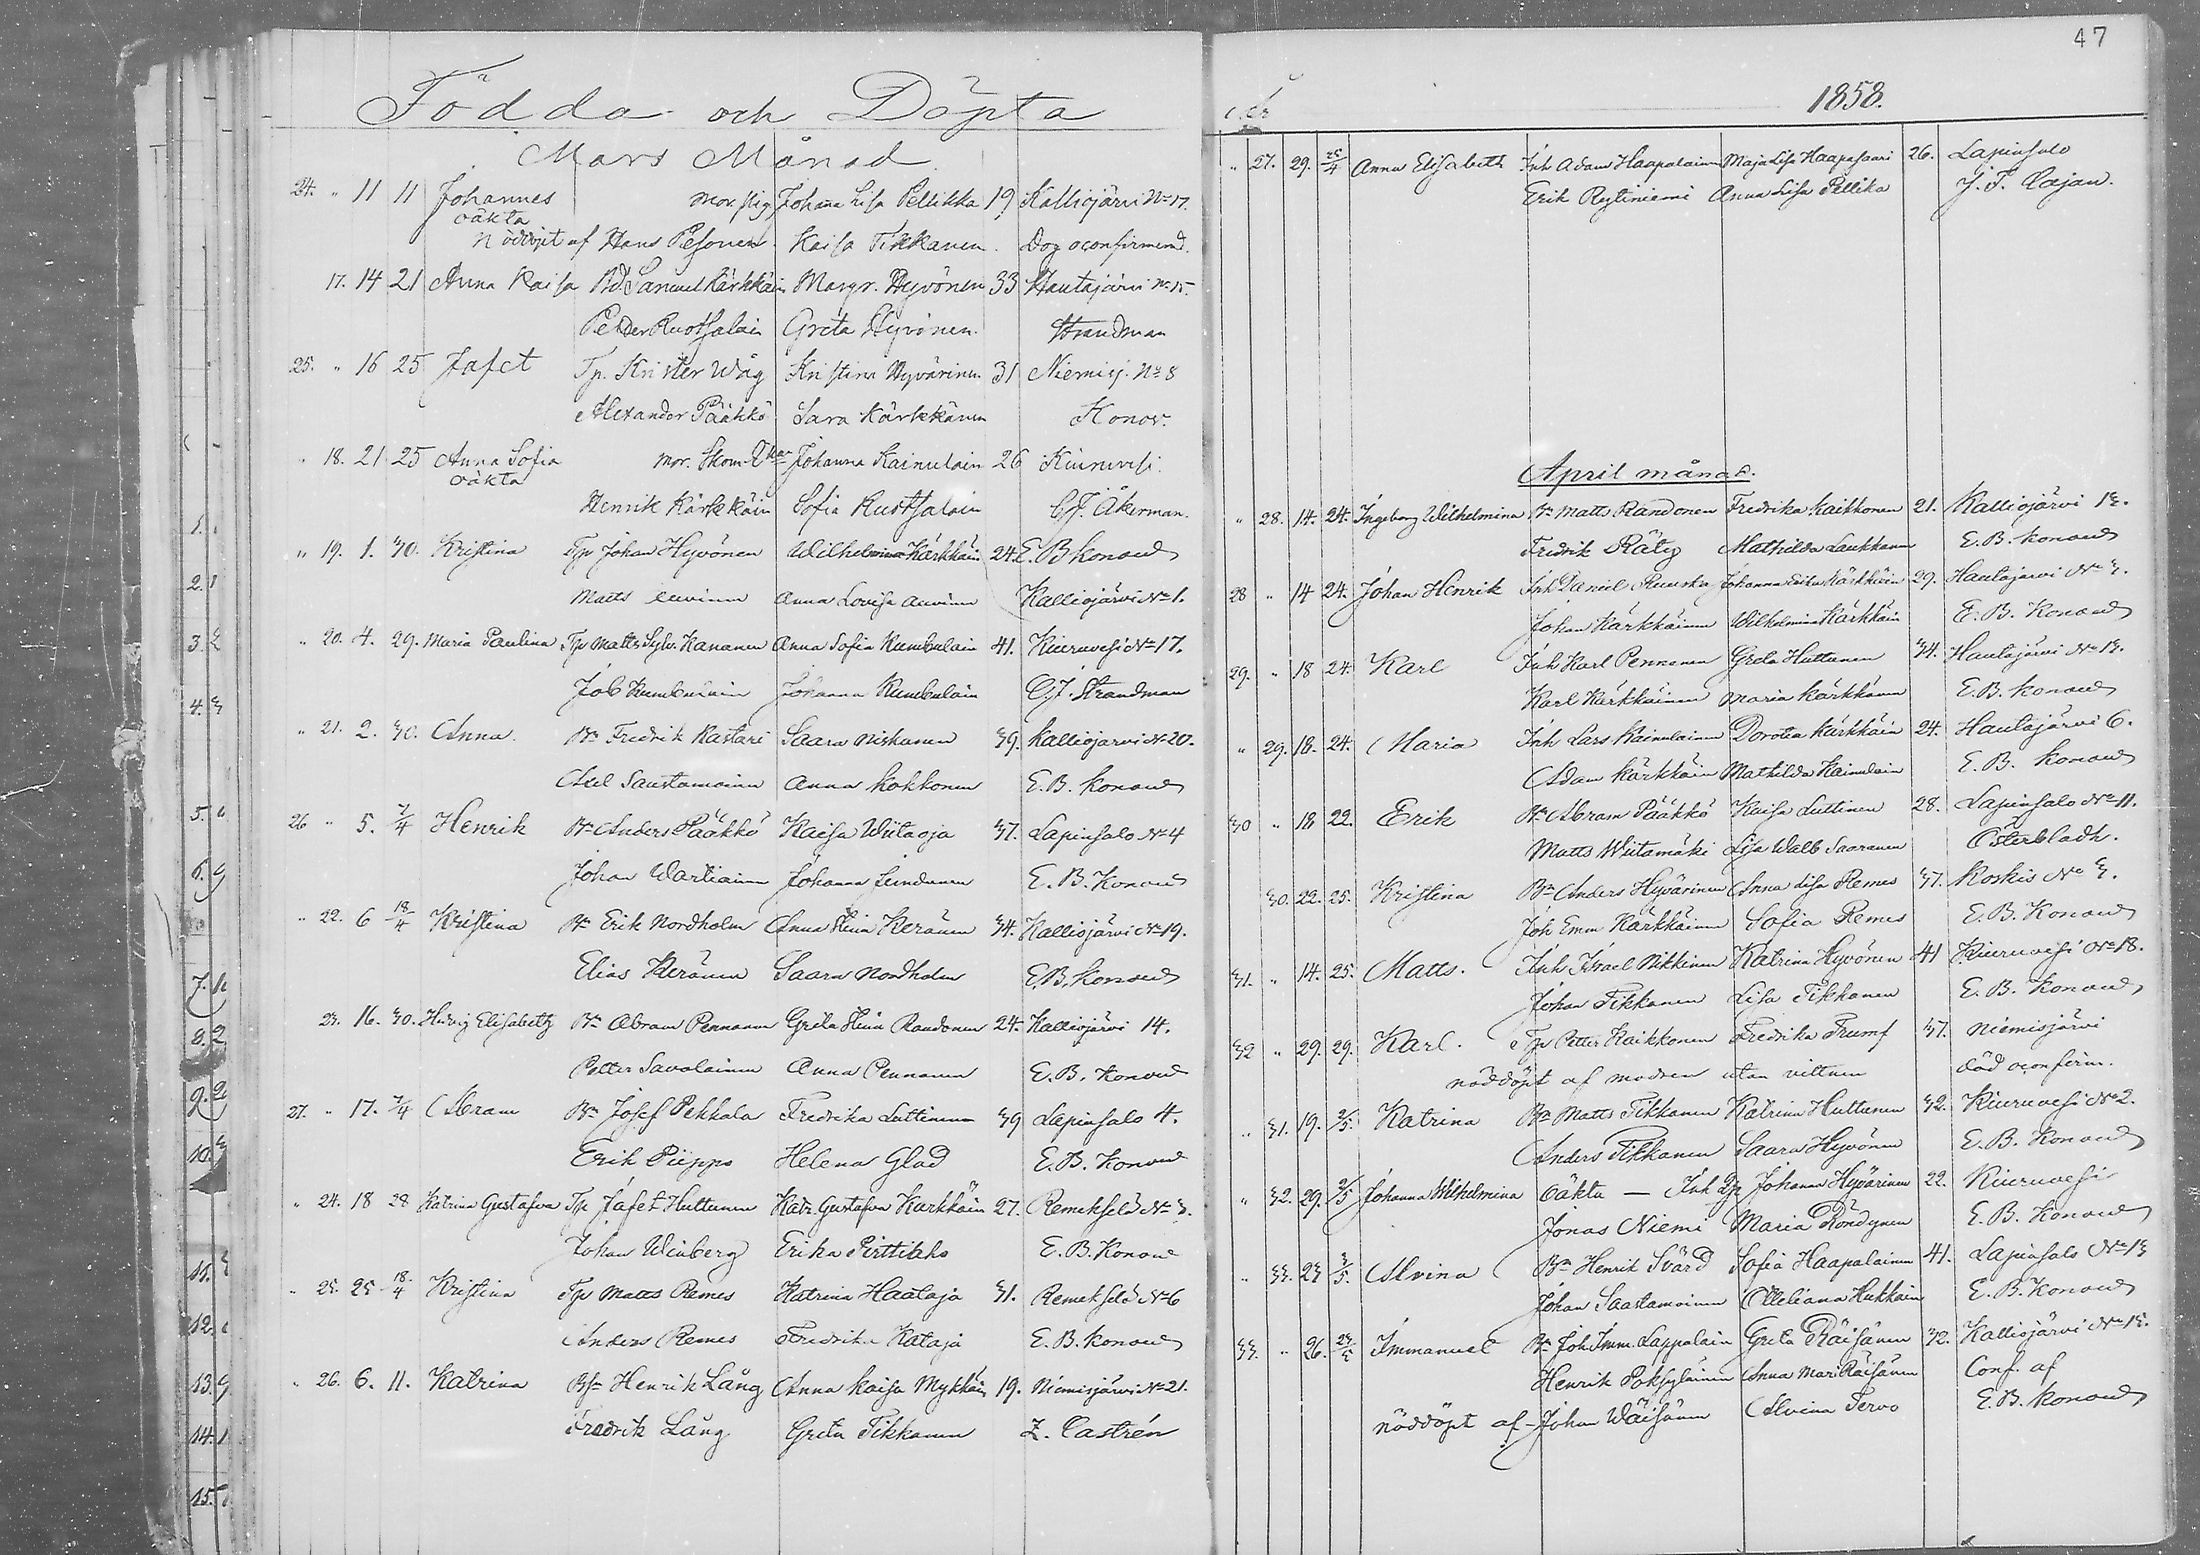 Födda och Döpta
Mars Månad
24. " 11 11 Johannes mor. pig Johana Lisa Pellikka 19 Kalliojärvi No 17.
oäkta
Nöddöpt af Hans Pesonen. Kaisa Tikkanen. Dog oconfirmerd.
17. 14 21 Anna Kaisa Bd. Samuel Kärkkäin Margr. Hyvönen 33 Hautajärvi No 15.
Petter Ruotsalain Greta Hyvönen Strandman
25. " 16 25 Jafet Tp. Krister Wåg Kristina Hyvärinen 31 Niemisj. No 8
Alexander Pääkkö Sara Kärkkänen Konov.
" 18. 21 25 Anna Sofia mor. Johanna Kainulain 26 Kiuruvesi.
oäkta
Henrik Kärkkäin Sofia Rustsalain Åkerman.
" 19. 1. 30. Kristina Tp Johan Hyvönen Wilhelmina Kärkkäin 24. E. B Konow
Matts Anna Lovisa Kalliojärvi No 1.
" 20. 4. 29. Maria Paulina Tp Matts Sylv. Kananen Anna Sofia Kumbulain 41. Kiuruvesi No 17.
Job Kumbulain Johanna Kumbulain C. J. Strandman
" 21. 2. 30. Anna. Bn Fredrik Kastari Saara Niskanen 39. Kalliojarvi No 20.
Axel Saastamoinen Anna Kokkonen E. B. Konow
26 " 5. 7/4 Henrik Bn Anders Pääkkö Kaisa Wiitaoja 37. Lapinsalo No 4
Johan Wartiainen Johanna E. B. Konow
" 22. 6 18/4 Kristina Bn Erik Nordholm Anna Stina Keränen 34. Kalliojärvi No 19.
Elias Keränen Saara Nordholm E. B. Konow
23. 16. 30. Hedvig Elisabeth Bn Abram Pennanen Greta Stina Raudonen 24. Kalliojärvi 14.
Petter Savolainen Anna Pennanen E. B. Konow
27. " 17. 7/4 Abram Bn Josef Pekkala Fredrika Luttinen 39 Lapinsalo 4.
Erik Piippo Helena Glad E. B. Konow
" 24. 18 28 Katrina Gustafva Tp Jafet Huttunen Katr. Gustafva Karkkäin 27. Remekselä No 3.
Johan Winberg Erika Pirttiaho E. B. Konow
" 25. 25 18/4 Kristina Tp Matts Remes Katrina Haataja 31. Remekselä No 6
Anders Remes Fredrika Kataja E. B. Konow
" 26. 6. 11. Katrina Bsn Henrik Lång Anna Kaisa Mykkän 19. Niemisjärvi No 21.
Fredrik Lång Greta Tikkanen Z. Castrén
47
år 1858.
" 27. 29. 25/4 Anna Elisabeth Inh Adam Haapalainen Maja Lisa Haapasaari 26. Lapinsalo
Erik Rytiniemi Anna Lisa Pellika J. F. Cajan.
April månad.
" 28. 14. 24. Ingeborg Wilhelmina Bn Matts Raudonen Fredrika Kaikkonen 21. Kalliojärvi 13.
Fredrik Räty Mathilda Laukkanen E. B. Konow
28 " 14 24. Johan Henrik Inh Daniel Ruuska Johanna Erika Kärkkäin 29. Hautajarvi No 3.
Johan Kärkkäinen Wilhelmina Kärkkäin E. B. Konow
29. " 18 24. Karl Inh Karl Pennanen Greta Huttunen 34. Hautajärvi No 13.
Karl Kärkkäinen Maria Kärkkänen E. B. Konow
" 29. 18. 24. Maria Inh Lars Kainulainen Dorotea Kärkkäin 24. Hautajärvi 6.
Adam Kärkkäin Mathilda Kainulain E. B. Konow
30 " 18 22. Erik Bn Abram Pääkkö Kaisa Luttinen 28. Lapinsalo No 11.
Matts Wiitamäki Lisa Walb Saaranen Österbladh.
30. 22. 25. Kristina Bn Anders Hyvärinen Anna Lisa Remes 37. Koskis No 3.
Joh Eman Kärkkäinen Sofia Remes E. B. Konow
31. " 14. 25. Matts. Inh Israel Nikkinen Katrina Hyvönen 41 Kiuruvesi No 18.
Johan Tikkanen Lisa Tikkanen E. B. Konow
32 " 29. 29. Karl. Tp Petter Kaikkonen Fredrika Trumf 37. Niemisjärvi
nöddöpt af modren utan vittnen död oconfirm.
" 31. 19. 2/5. Katrina Bn Matts Tikkanen Katrina Huttunen 32. Kiuruvesi No 2.
Anders Tikkanen Saara Hyvönen E. B. Konow
" 32. 29. 2/5 Johanna Wilhelmina Oäkta — Inh Dp Johanna Hyvärinen 22. Kiuruvesi
Jonas Niemi Maria Röndynen E. B. Konow
" 33. 23 3/5. Alvina Bn Henrik Svärd Sofia Haapalainen 41. Lapinsalo No 13
Johan Saastamoinen Olleliana Hukkain E. B. Konow
33. " 26. 23/5 Immanuel Bn Joh Imm. Lappalain Greta Räisänen 32. Kalliojärvi No 13.
Henrik Poksyläinen Anna Mari Räisänen Conf. af
nöddöpt af – Johan Wäisänen Alvina Tervo E. B. Konow